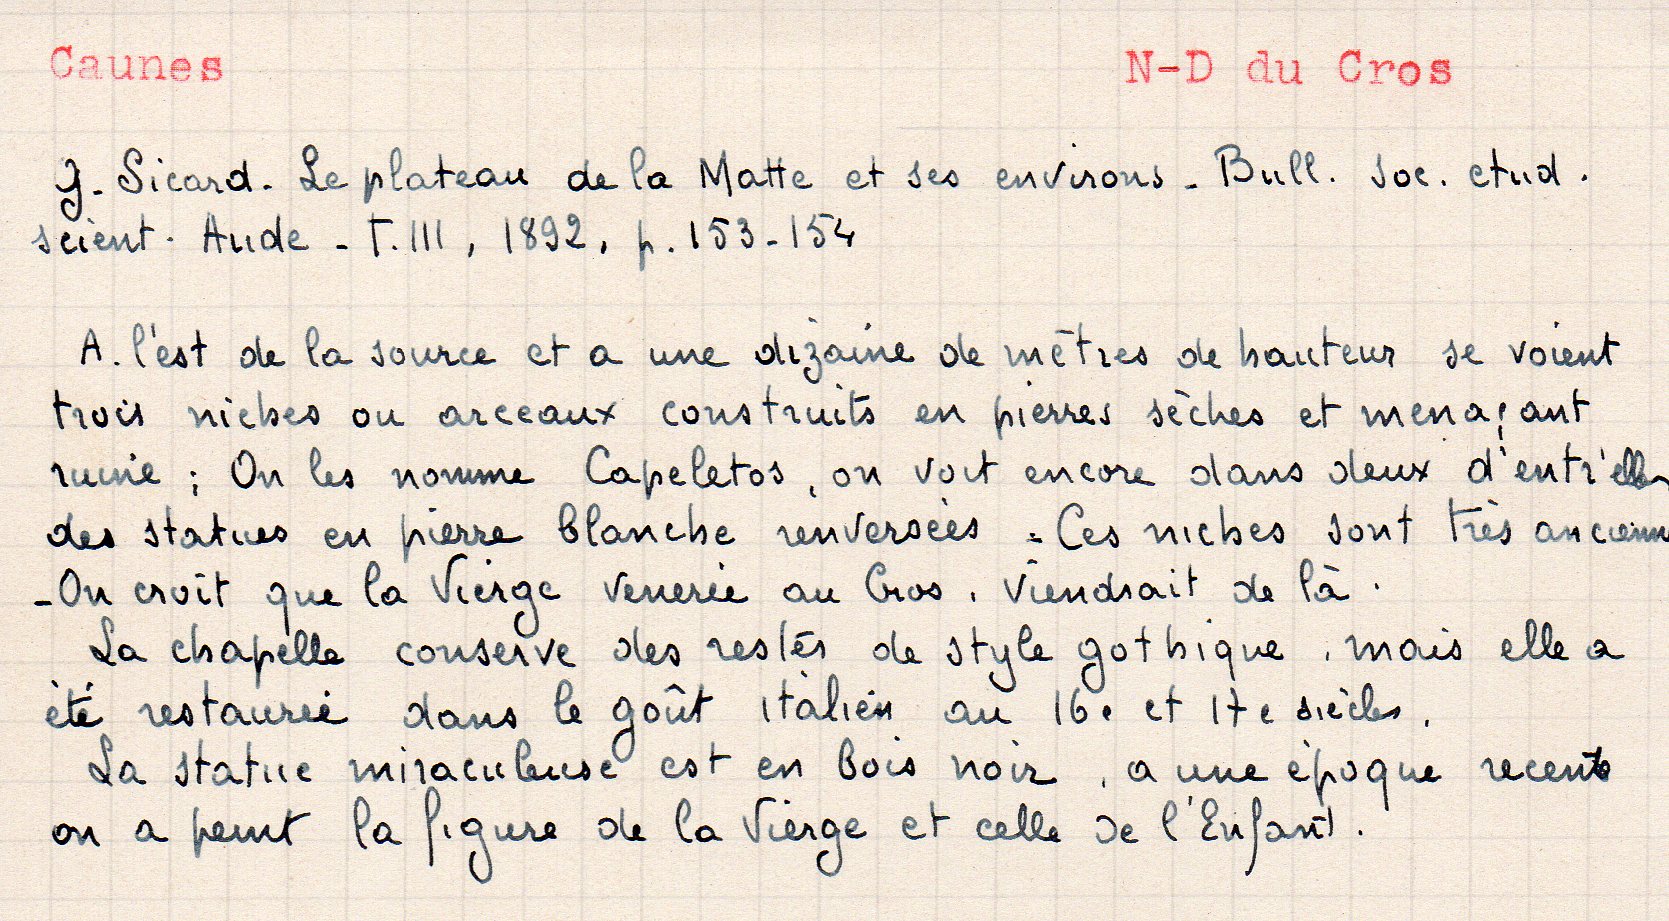 Caunes N-D du Cros
G. Sicard. Le plateau de la Matte et ses environs - Bull. soc. etud.
scient. Aude - T. III, 1892, p. 153-154
A. l'est de la source et a une dizaine de mètres de hauteur se voient
trois niches ou arceaux construits en pierres sèches et menaçant
ruine ; On les nomme Capeletos, on voit encore dans deux d'entr'elles
des statues en pierre blanche renversées - Ces niches sont très anciennes
- On croit que la Vierge venerée au Cros, viendrait de là.
La chapelle conserve des restes de style gothique, mais elle a
été restaurée dans le goût italien au 16e et 17e siècles.
La statue miraculeuse est en bois noir, a une époque recente
on a peint la figure de la Vierge et celle de l'Enfant.